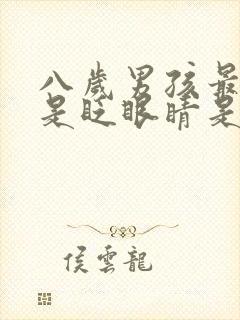 八歲男孩最
是眨眼睛是
侯雲龍